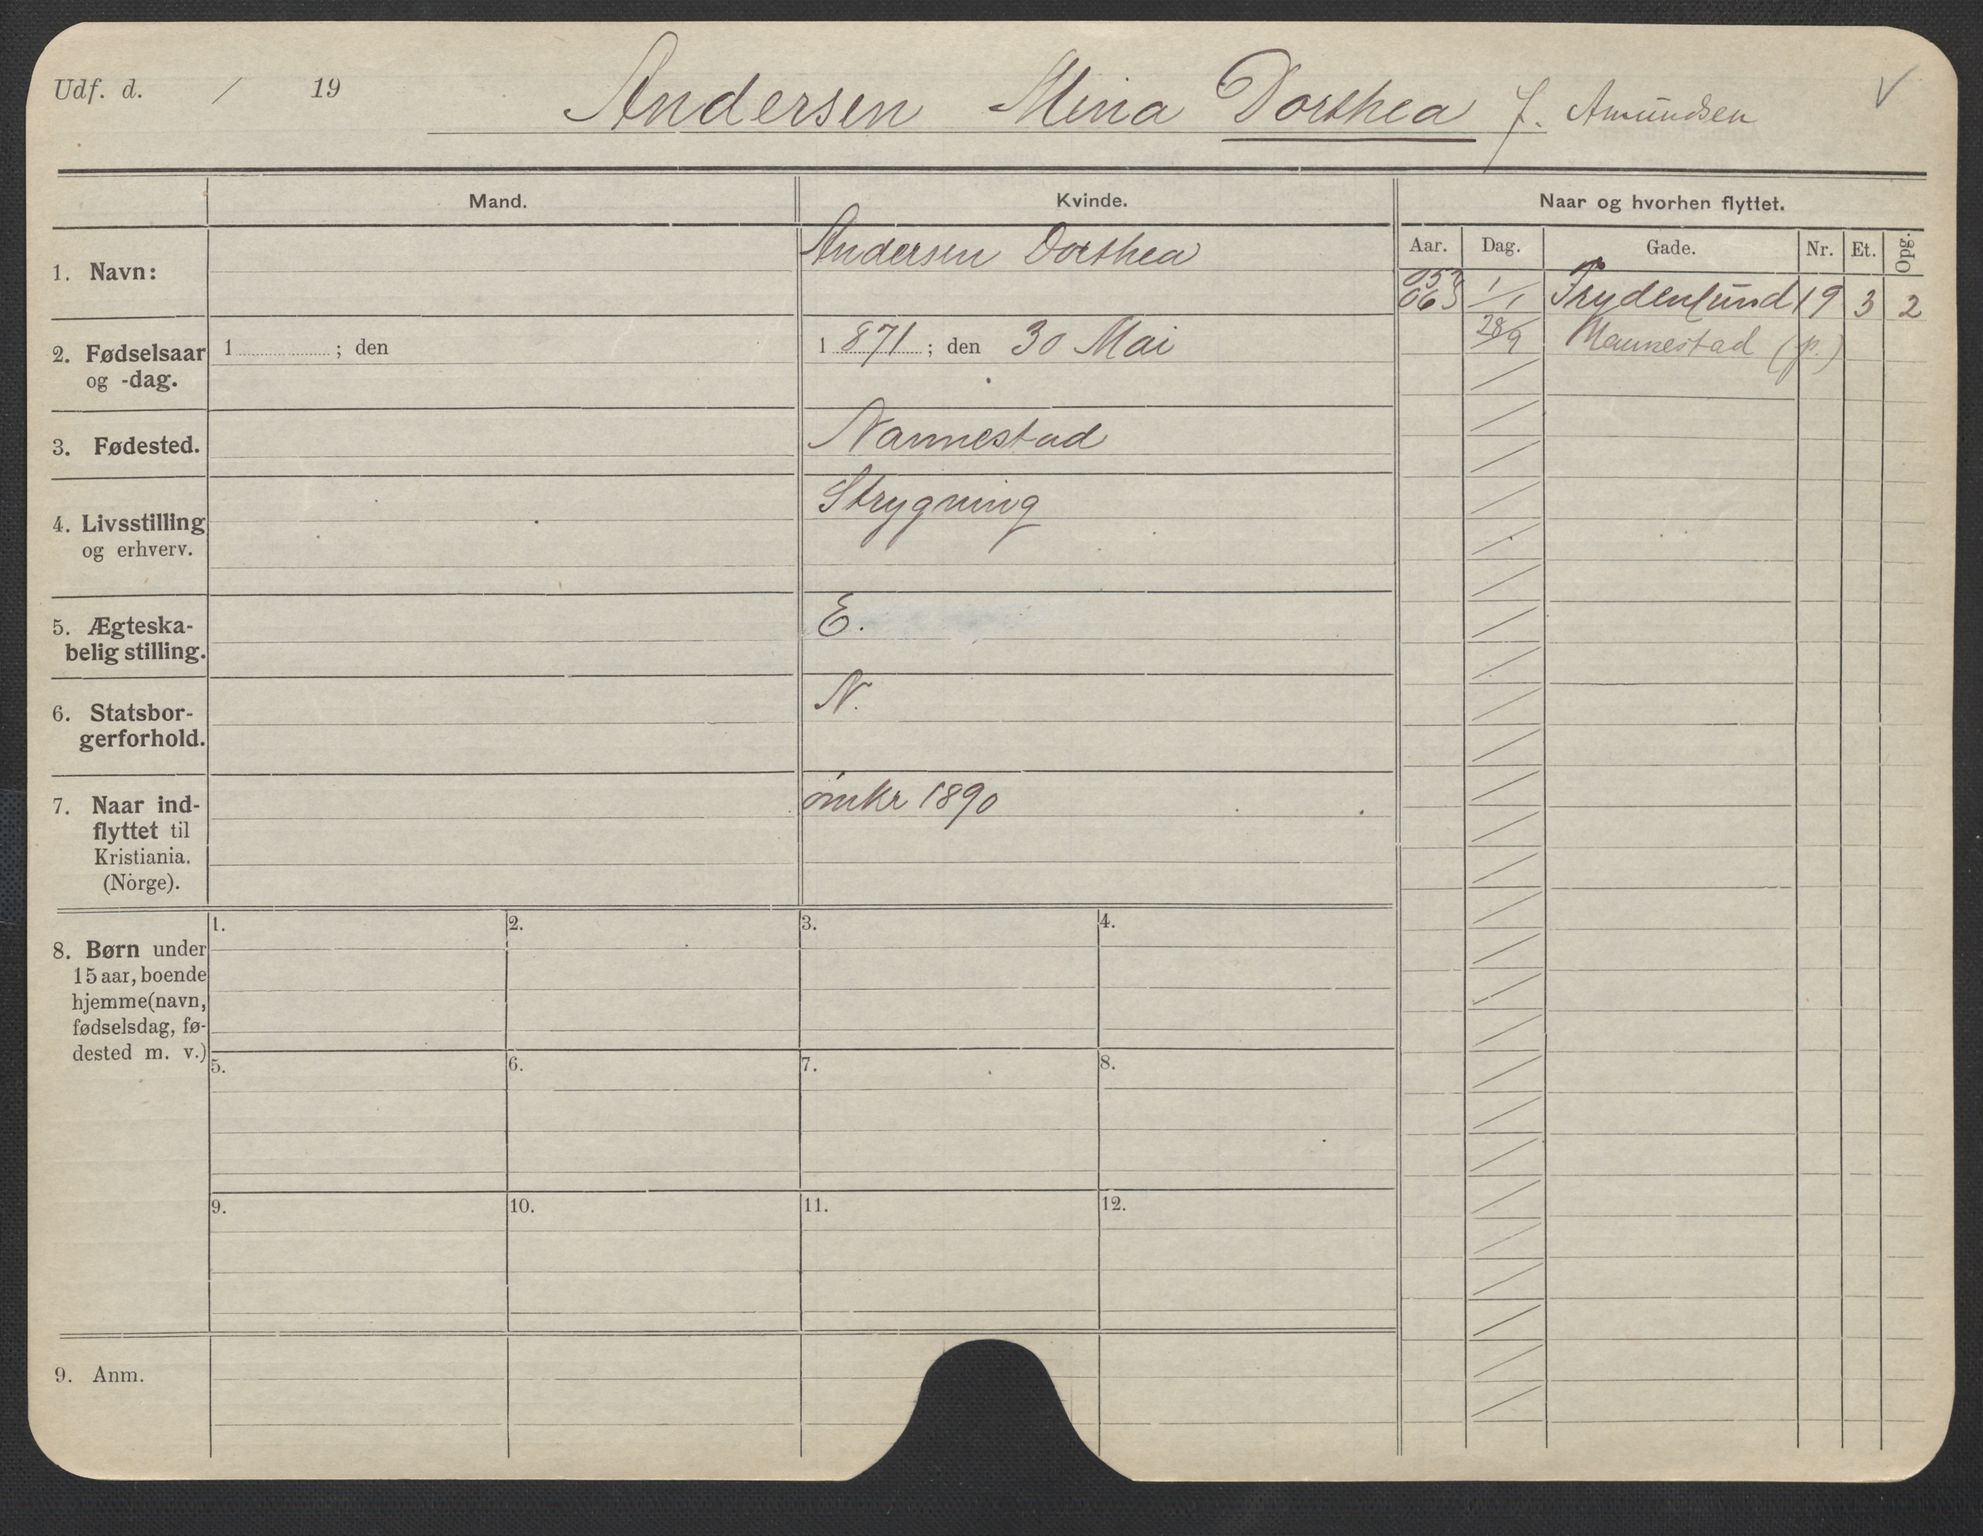 Udf. d. / 19
Andersen Mina Dorthea f. Amundsen
Mand.
Kvinde.
Naar og hvorhen flyttet.
Aar. Dag. Gade. Nr. Et. Opg.
1. Navn:
Andersen Dorthea
1/1 Frydenlund 19 3 2
06 28/9 Nannestad (p.)
2. Fødselsaar og -dag.
1 ; den
1871; den 30 Mai
3. Fødested.
Nannestad
4. Livsstilling og erhverv.
Strygning
5. Ægteska-
belig stilling.
E.
6. Statsbor-
gerforhold.
N.
7. Naar ind-
flyttet til
Kristiania.
(Norge).
omkr 1890
8. Børn under
15 aar, boende
hjemme (navn,
fødselsdag, fø-
dested m. v.)
1. 2. 3. 4.
5. 6. 7. 8.
9. 10. 11. 12.
9. Anm.